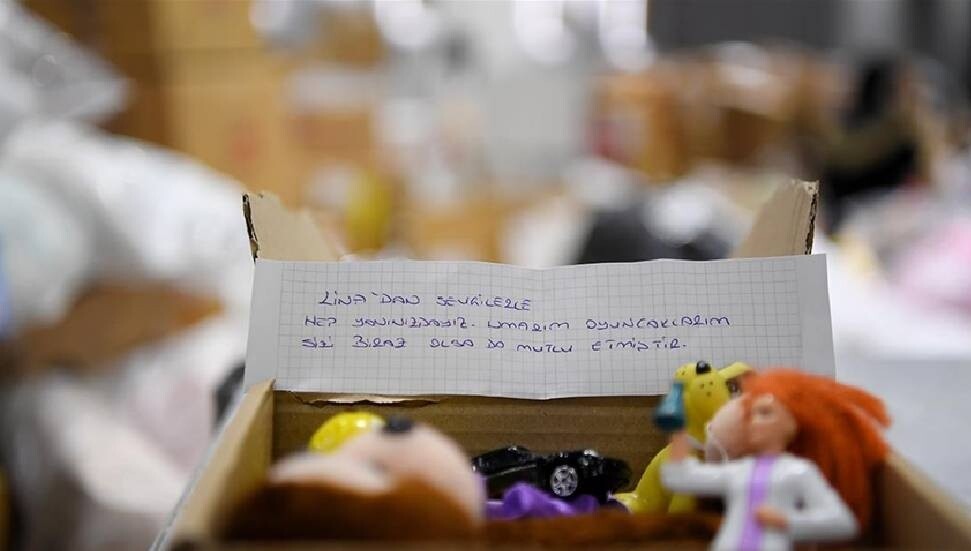 LİNA'DAN SEVGİLERLE
HEP YANINIZDAYIZ. UMARIM OYUNCAKLARIM
SİZİ BİRAZ OLSA DA MUTLU ETMİŞTİR.